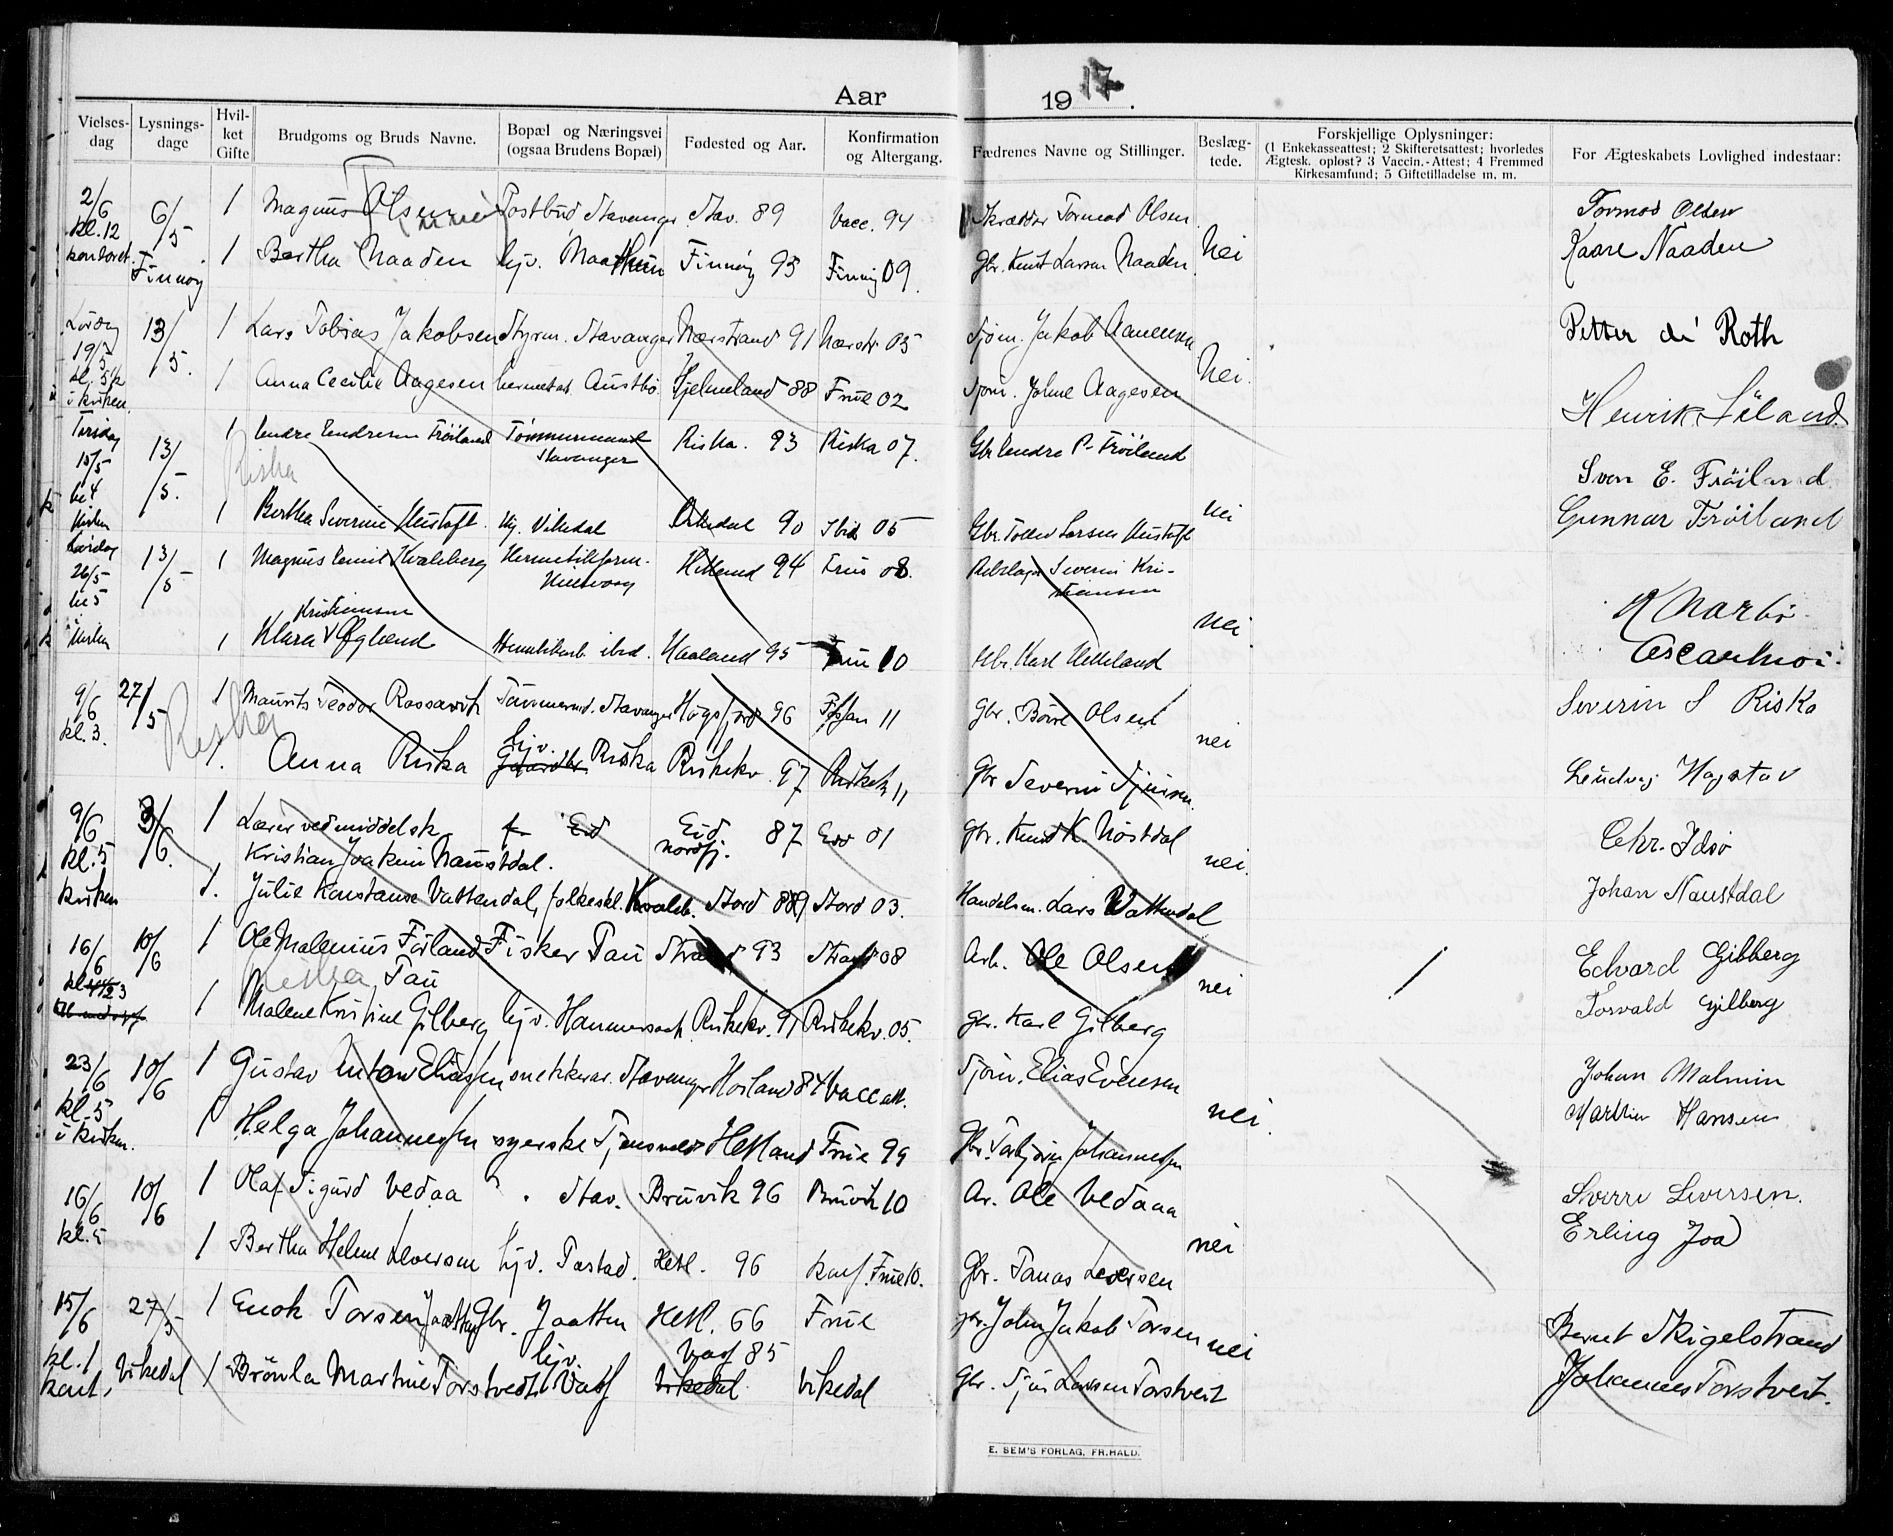 Aar 1917.
Vielses-dag
Lysnings-dage
Hvil-ket Gifte
Brudgoms og Bruds Navne.
Bopæl og Næringsvei (ogsaa Brudens Bopæl)
Fødested og Aar.
Konfirmation og Altergang.
Fædrenes Navne og Stillinger.
Beslæg-tede.
Forskjellige Oplysninger:
(1 Enkekasseattest; 2 Skifteretsattest; hvorledes
Ægtesk. opløst? 3 Vaccin.-Attest; 4 Fremmed
Kirkesamfund; 5 Giftetilladelse m. m.
For Ægteskabets Lovlighed indestaar:
2/6 6/5 1 Magnus Olsen Postbud Stavanger Stav. 89 Vacc. 94 Skrædder Tormod Olsen Tormod Olsen
kl. 12
kontoret. Finnøy 1 Bertha Naaden hjv. Finnøy 95 Finnøy 09. Gbr. Knut Larsen Naaden nei Kaare Naaden
Lørdag 13/5. 1 Lars Tobias Jakobsen Styrm. Stavanger Nærstrand 91 Nærstr 05 Sjøm. Jakob Petter de Roth
19/5
kl. 5 1/2
i kirken. 1 Anna Cecilie Aagesen Austbø Hjelmeland 88 Frue 02 Sjøm. Aagesen Nei. Henrik Söland.
Tirsdag 13/5. 1 Endre Endresen Frøiland Tømmermand Stavanger Riska. 93 Riska 07. Gbr Endre P. Frøiland Sven E. Fröiland
15/5 Riska
kl 4
Kirken 1 Bertha Severine Mustoft. Hj. Vikedal Vikedal 90 Ibid 05 Gbr. Tollev Larsen Mustoft nei Gunnar Fröiland
Lørdag 13/5 1 Magnus Emil Kvaleberg Hetland 94 Frue 08. Severin Kristiansen
26/5
kl 5
i Kristiansen
kirken 1 Klara V Øglend ibid. Haaland 95 Frue 10 Gbr. Karl nei
9/6 27/5 1 Maurits Teodor Rossavik Tømmermd. Stavanger Høgsfjord 96 11 Gbr. Børre Olsen Severin S Riska
kl. 3. Riska
1. Anna Riska hjv. Riska Riskekv. 97 Riskek 11 Gbr Severin nei Ludvig Hogstav
9/6 3/6. 1 Lærer ved middelsk. Eid Nordfj. 87 Eid 01 gbr. Knud K. Nøstdal Chr. Idsø
kl. 5 Kristian Joakim Naustdal.
kirken 1. Julie Konstanse Vattendal, folkeskl. Kvaleb. Stord 89 Stord 03. Handelsm. Lars Vattendal nei. Johan Naustdal
16/6 10/6 1 Ole Malenius Førland Fisker Tau Strand 93 Strand 08 Arb. Ole Olsen Edvard Gilberg
kl 4 1/2 3 Tau
1 Malene Kristine Gilberg hjv. Hammersmark Riskekv. 91 Riskekv. 05. gbr. Karl Gilberg nei Torvald Gilberg
23/6 10/6 1 Gustav Anton Eliassen snekkerar. Stavanger Hosland 84 Vacc att. Sjøm. Elias Evensen Johan Malmin
kl. 5
i kirken. 1 Helga Johannessen syerske Tjensvold Hetland Frue 99 Gbr. Torbjørn Johannessen nei. Martin Hansen
16/6 10/6 1 Olaf Sigurd Vedaa " . Stav. Bruvik 96 Bruvik 10 Ar. Ole Vedaaa Sverre Siversen.
kl. 5
1 Bertha Helene Siversen hjv. Tastad. Hetl. 96 Konf. Frue 10. Gbr. Tanas Siversen nei Erling Joa
15/6 27/5 1 Enok Torsen Jaatten Gbr. Jaatten Hetl. 66 Frue gbr. John Jakob Torsen nei Bernt Skigelstrand
kl. 1 hjv. Vats 85
kont. Vikedal 1 Brønla Martine Torstvedt Vats Vikedal Vikedal Gbr. Sjur Larsen Torstveit Johannes Torstveit.
E. SEM'S FORLAG, FR.HALD.